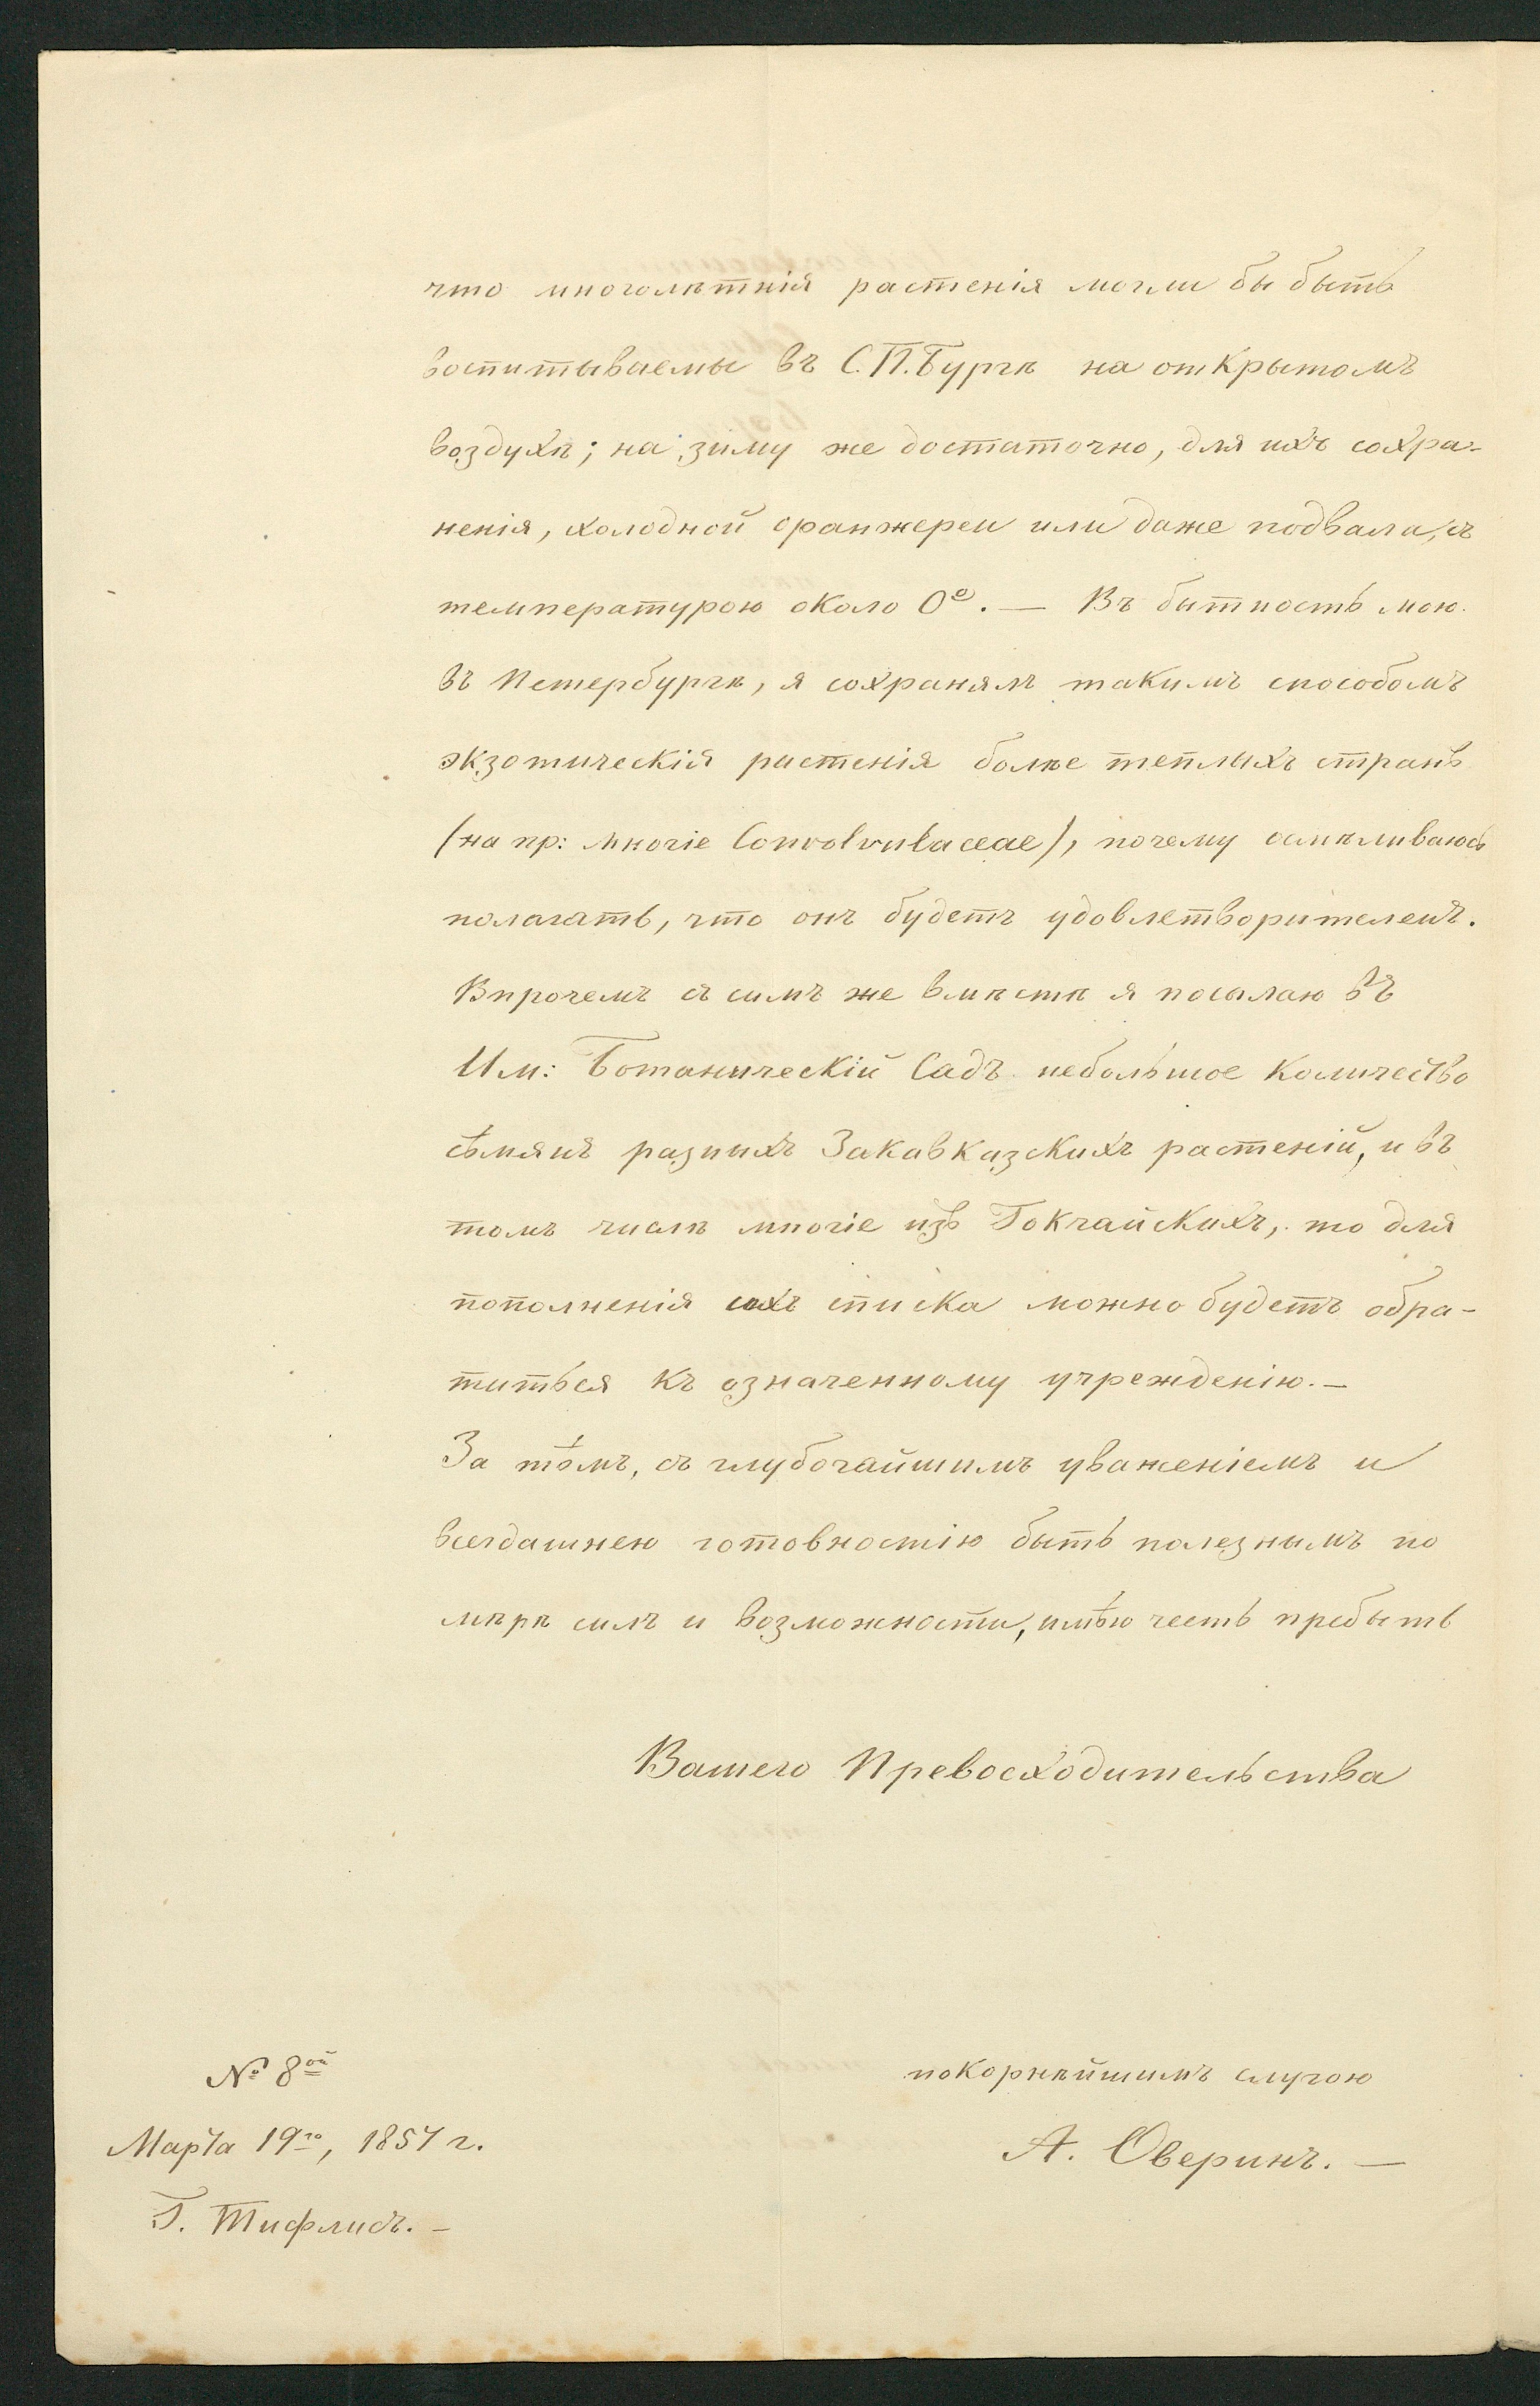 что многолѣтнія растенія могли бы быть
воспитываемы въ С.П.Бургѣ на открытомъ
воздухѣ; на зиму же достаточно, для ихъ сохра-
ненія, холодной оранжереи или даже подвала, съ
температурою около 0°. — Въ бытность мою
въ Петербургѣ, я сохранялъ такимъ способомъ
экзотическія растенія болѣе теплыхъ странъ
(на пр: многіе Convolvulaceae), почему осмѣливаюсь
полагать, что онъ будетъ удовлетворителенъ.
Впрочемъ съ симъ же вмѣстѣ я посылаю въ
Им: Ботаническій Садъ небольшое количество
сѣмянъ разныхъ Закавказскихъ растеній, и въ
томъ числѣ многіе изъ Гокчайскихъ, то для
пополненія ихъ списка можно будетъ обра-
титься къ означенному учрежденію. —
За тѣмъ, съ глубочайшимъ уваженіемъ и
всегдашнею готовностію быть полезнымъ по
мѣрѣ силъ и возможности, имѣю честь пребыть
Вашего Превосходительства
покорнѣйшимъ слугою
А. Оверинъ. —
№ 8ой
Марта 19го, 1857 г.
Г. Тифлисъ. —